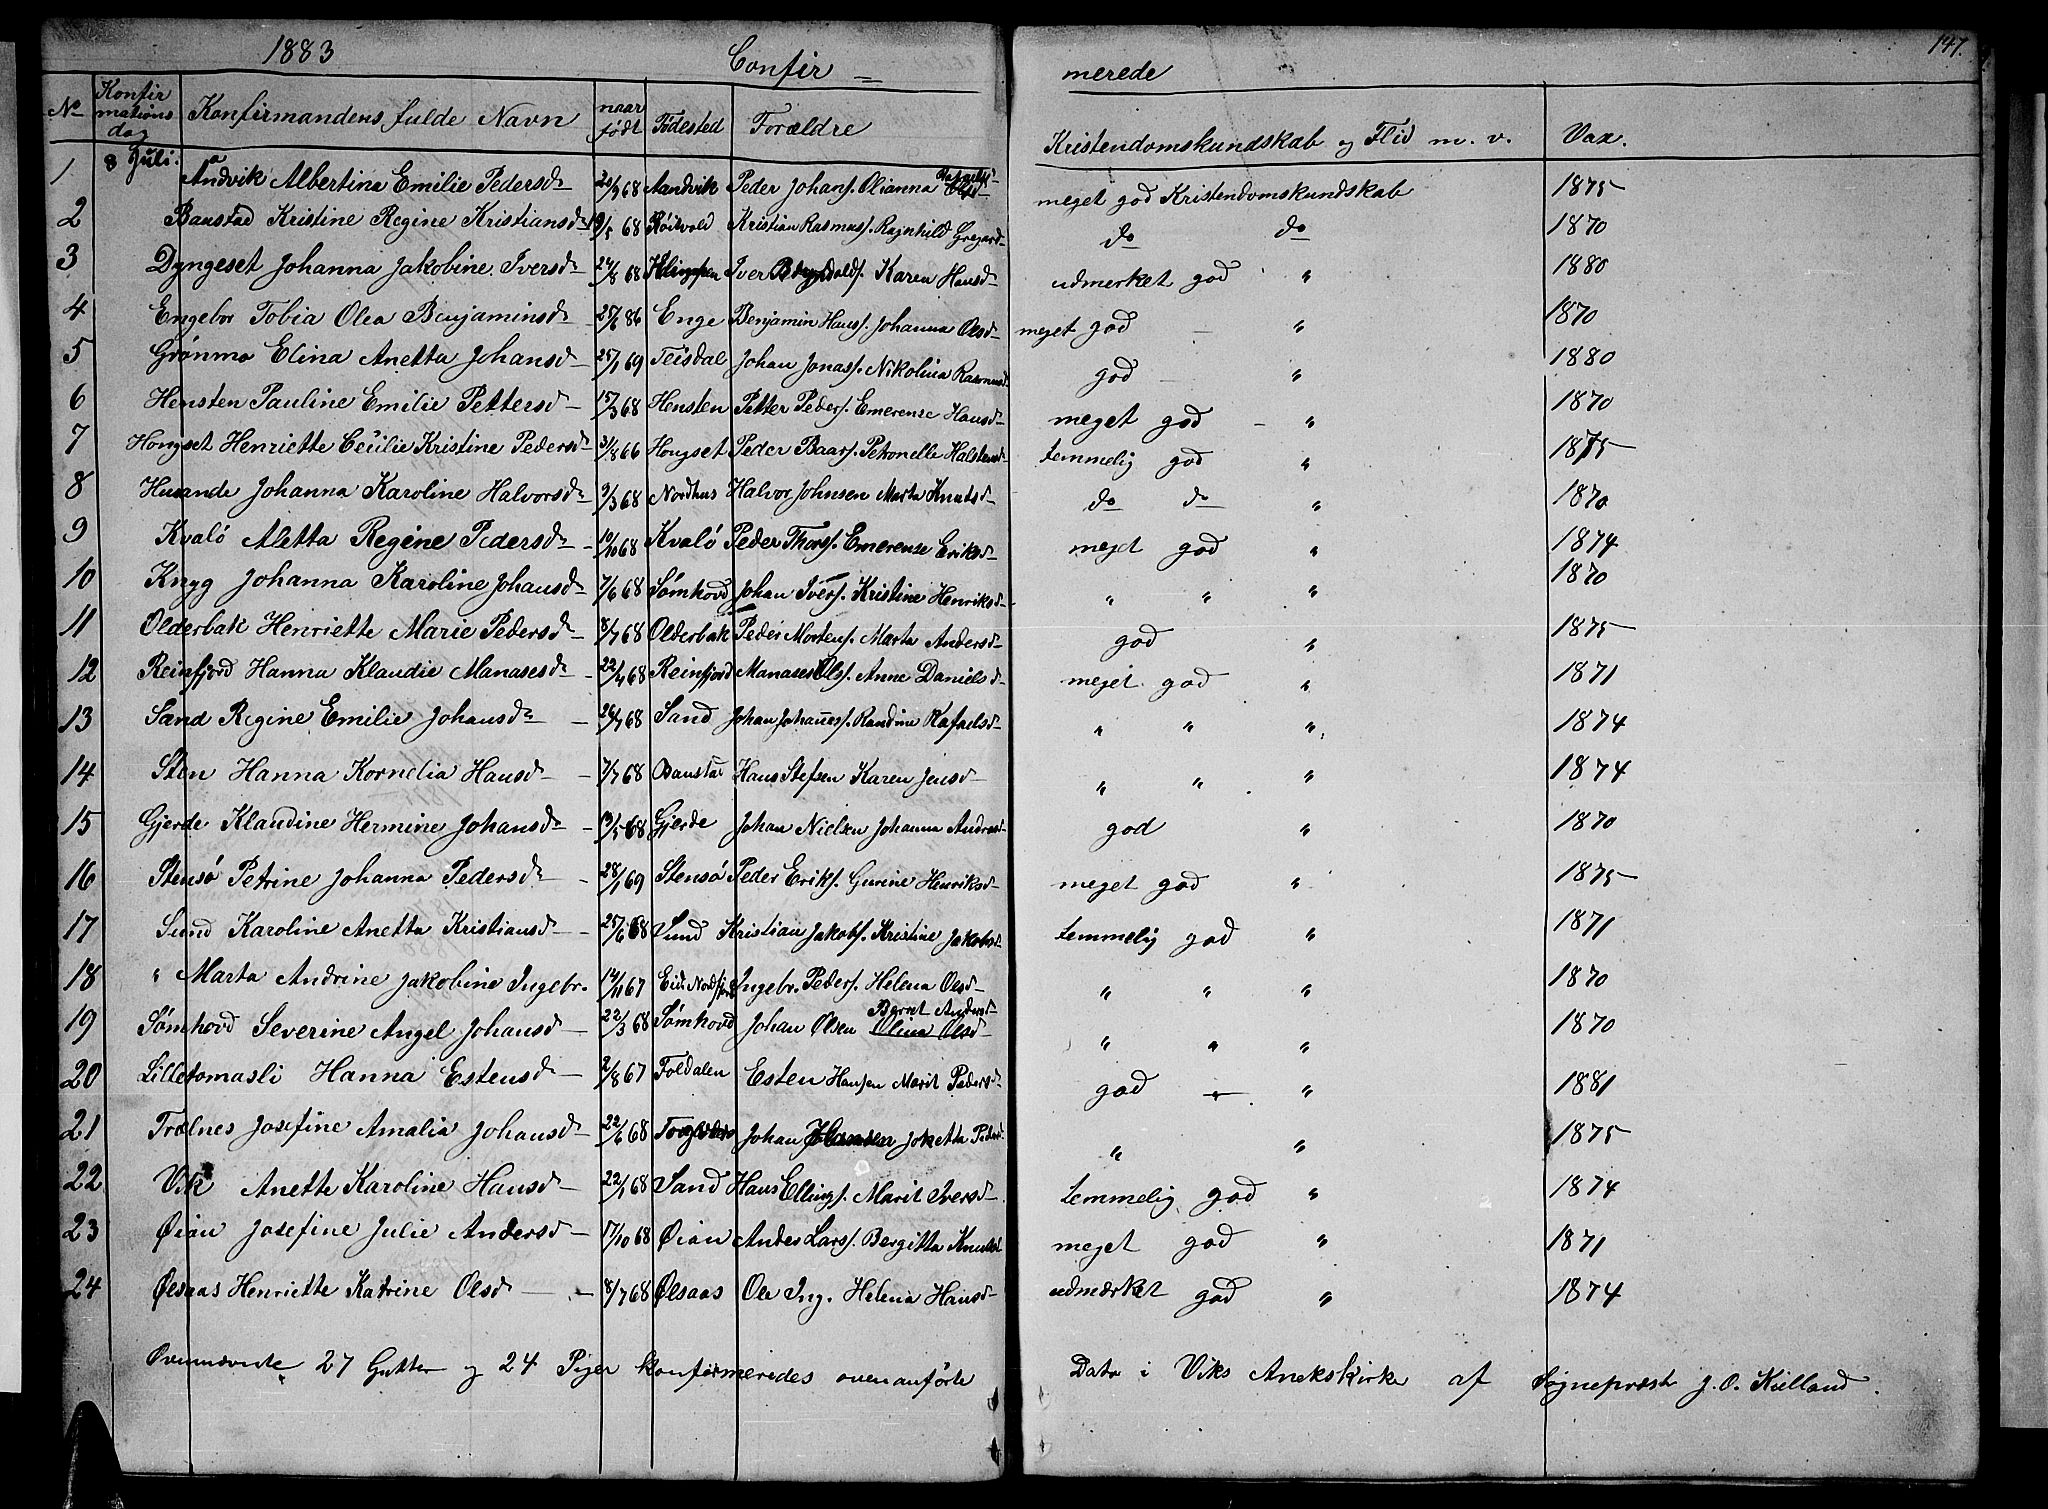 1883 Confir = merede 147.
No Konfirmationsdag Konfirmandens fulde Navn naar født Fødested Forældre Kristendomskundskab og Flid m. v. Vax.
8 Juli.
1 Andvik Albertina Emilie Pedersd 68 Aandvik Peder Johans. Olianna meget god Kristendomskundskab 1875
2 Baustad Kristine Regine Kristiansd 68 Kristian Rasmuss. Ragnhild Gregard do do 1870
3 Dyngeset Johanna Jakobine Iversd 24/8 68 Klippen Iver Karen Hansd udmerket god " 1880
4 Engebø Tobia Olea Benjaminsd 25/6 86 Enge Benjamin Hans. Johanna Olsd meget god - " 1870
5 Grønmo Elina Anetta Johansd 25/1 69 Teisdal Johan Jonass. Nikolina Rasmusd god - " 1880
6 Hensten Pauline Emilie Pettersd - 15/3 68 Hensten Petter Peders. Emerense Hansd meget god - " 1870
7 Hongset Henriette Cecilie Kristine Pedersd 31/8 66 Hongset Peder Baars. Petronelle Halstensd temmelig god " 1875
8 Husande Johanna Karoline Halvorsd 9/3 68 Nordhus Halvor Johnsen Marta Knutsd do do " 1870
9 Kvalø Aletta Regine Pedersd 10/10 68 Kvalø Peder Thors. Emerense Eriksd meget god " 1874
10 Knyg Johanna Karoline Johansd 7/6 68 Sømhovd Johan Ivers. Kristine Henriksd " " " 1870
11 Olderbak Henriette Marie Pedersd 8/7 68 Olderbak Peder Mortens. Marta Andersd god " 1875
12 Reinfjord Hanna Klaudie Manasesd 22/4 68 Reinfjord Manases Ols. Anne Danielsd meget god " 1871
13 Sand Regine Emilie Johansd - 26/7 68 Sand Johan Johanes. Randine Rafaelsd " " " 1874
14 Sten Hanna Kornelia Hansd - 7/7 68 Baustad Hans Stefsen Karen Jensd " " " 1874
15 Gjerde Klaudine Hermine Johansd 19/5 68 Gjerde Johan Nielsen Johanna Andreasd god " 1870
16 Stensø Petrine Johanna Pedersd - 28/1 69 Stensø Peder Eriks. Gurine Henriksd meget god " 1875
17 Sund Karoline Anetta Kristiansd - 25/6 68 Sund Kristian Jakobs. Kristine Jakobsd temmelig god " 1871
18 " Marta Andrine Jakobine Ingebr. 14/11 67 Eid Nordfjord Ingebr. Peders. Helena Olsd " " " 1870
19 Sømhovd Severine Angel Johansd - 22/3 68 Sømhovd Johan Olsen Olina Olsd Beret Andersd " " " 1870
20 Lilletomasli Hanna Estensd - 2/8 67 Foldalen Esten Hansen Marit Pedersd god - " 1881
21 Trælnes Josefine Amalia Johansd 22/6 68 Johan Joketta Pedersd " " 1875
22 Vik Anette Karoline Hansd 22/1 68 Sand Hans Ellings. Marit Iversd temmelig god " 1874
23 Øian Josefine Julie Andersd 17/10 68 Øian Andes Lars. Bergitta Knutsd meget god " 1871
24 Ølsaas Henriette Katrine Olsd - 8/7 68 Ølsaas Ole Ing. Helena Hansd udmærket god " 1874
Ovennævnte 27 Gutter og 24 Piger konfirmeredes ovenanførte Dato i Viks Anekskirke af Sogneprest J. O. Kielland.